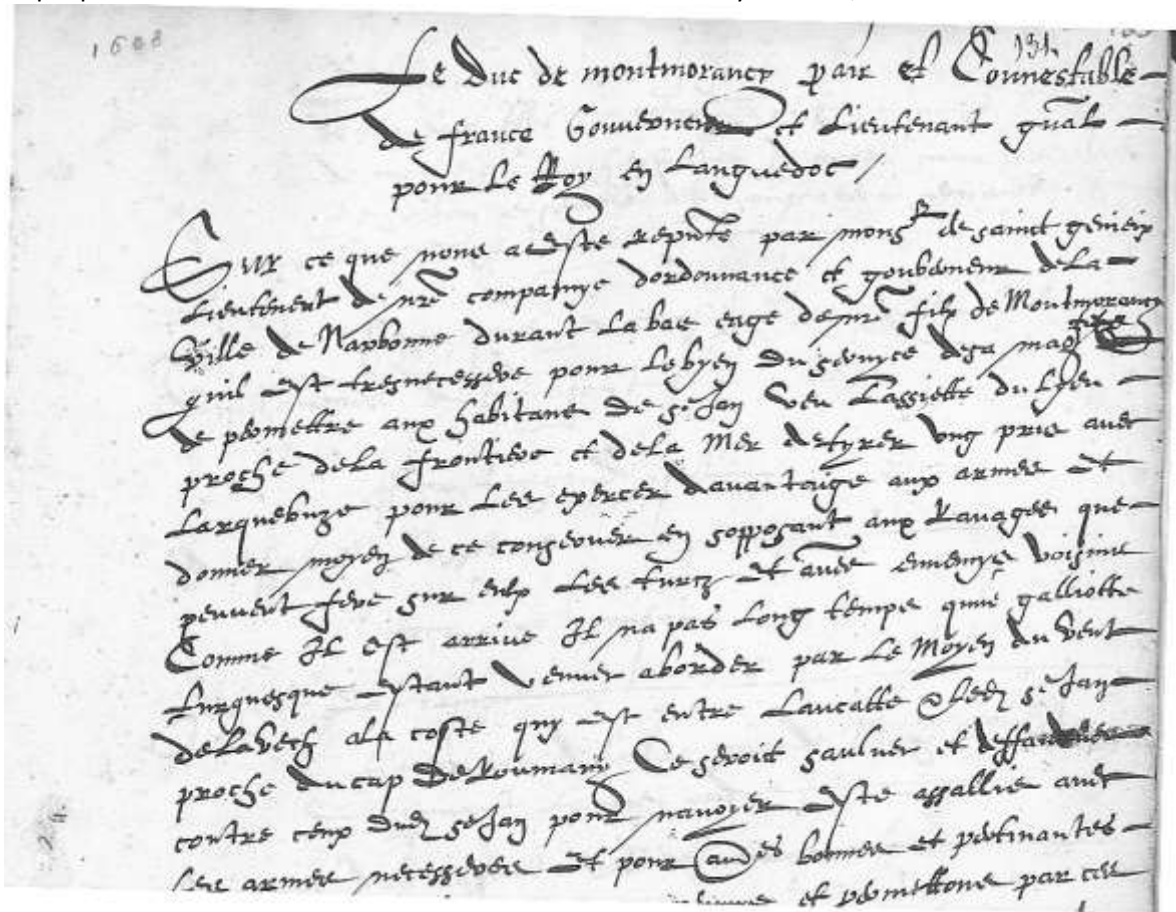 1608
131
Le Duc de montmorancy pair et Connestable
de france Gouverneur et Lieutenant gnāl
pour Le Roy en Languedoc /
Sur ce que nous a este repnte par monsr de sainct genieix
Lieutenent de nre compaignye dordonnance et gouverneur dela
Ville de Narbonne durant La bas eage de nre filz de Montmorancy
quil est tresnecessere pour Le byen du servyce de sa mag
de permettre aux habitans de st Jan veu Lassiette du Lyeu
proche dela frontiere et dela Mer de tyrer ung pris avec
Larquebuze pour Les exercer davantaige aux armes et
donner moyen de ce conserver en sopposant aux Ravages que
peuvent fere sur eulx Les turcz et aues ennemys voisins
Comme Il est arrive Il na pas Long temps qune galliotte
turquesque estant venue aborder par Le Moyen du vent
ala coste quy est entre Laucatte & led st Jan
proche du cap de Roumany Ce seroit saulvee et
contre ceux dud st Jan pour navoyer este assallie avec
Les armes necesseres Et pour aues bonnes et pertinantes
et permettons par ces